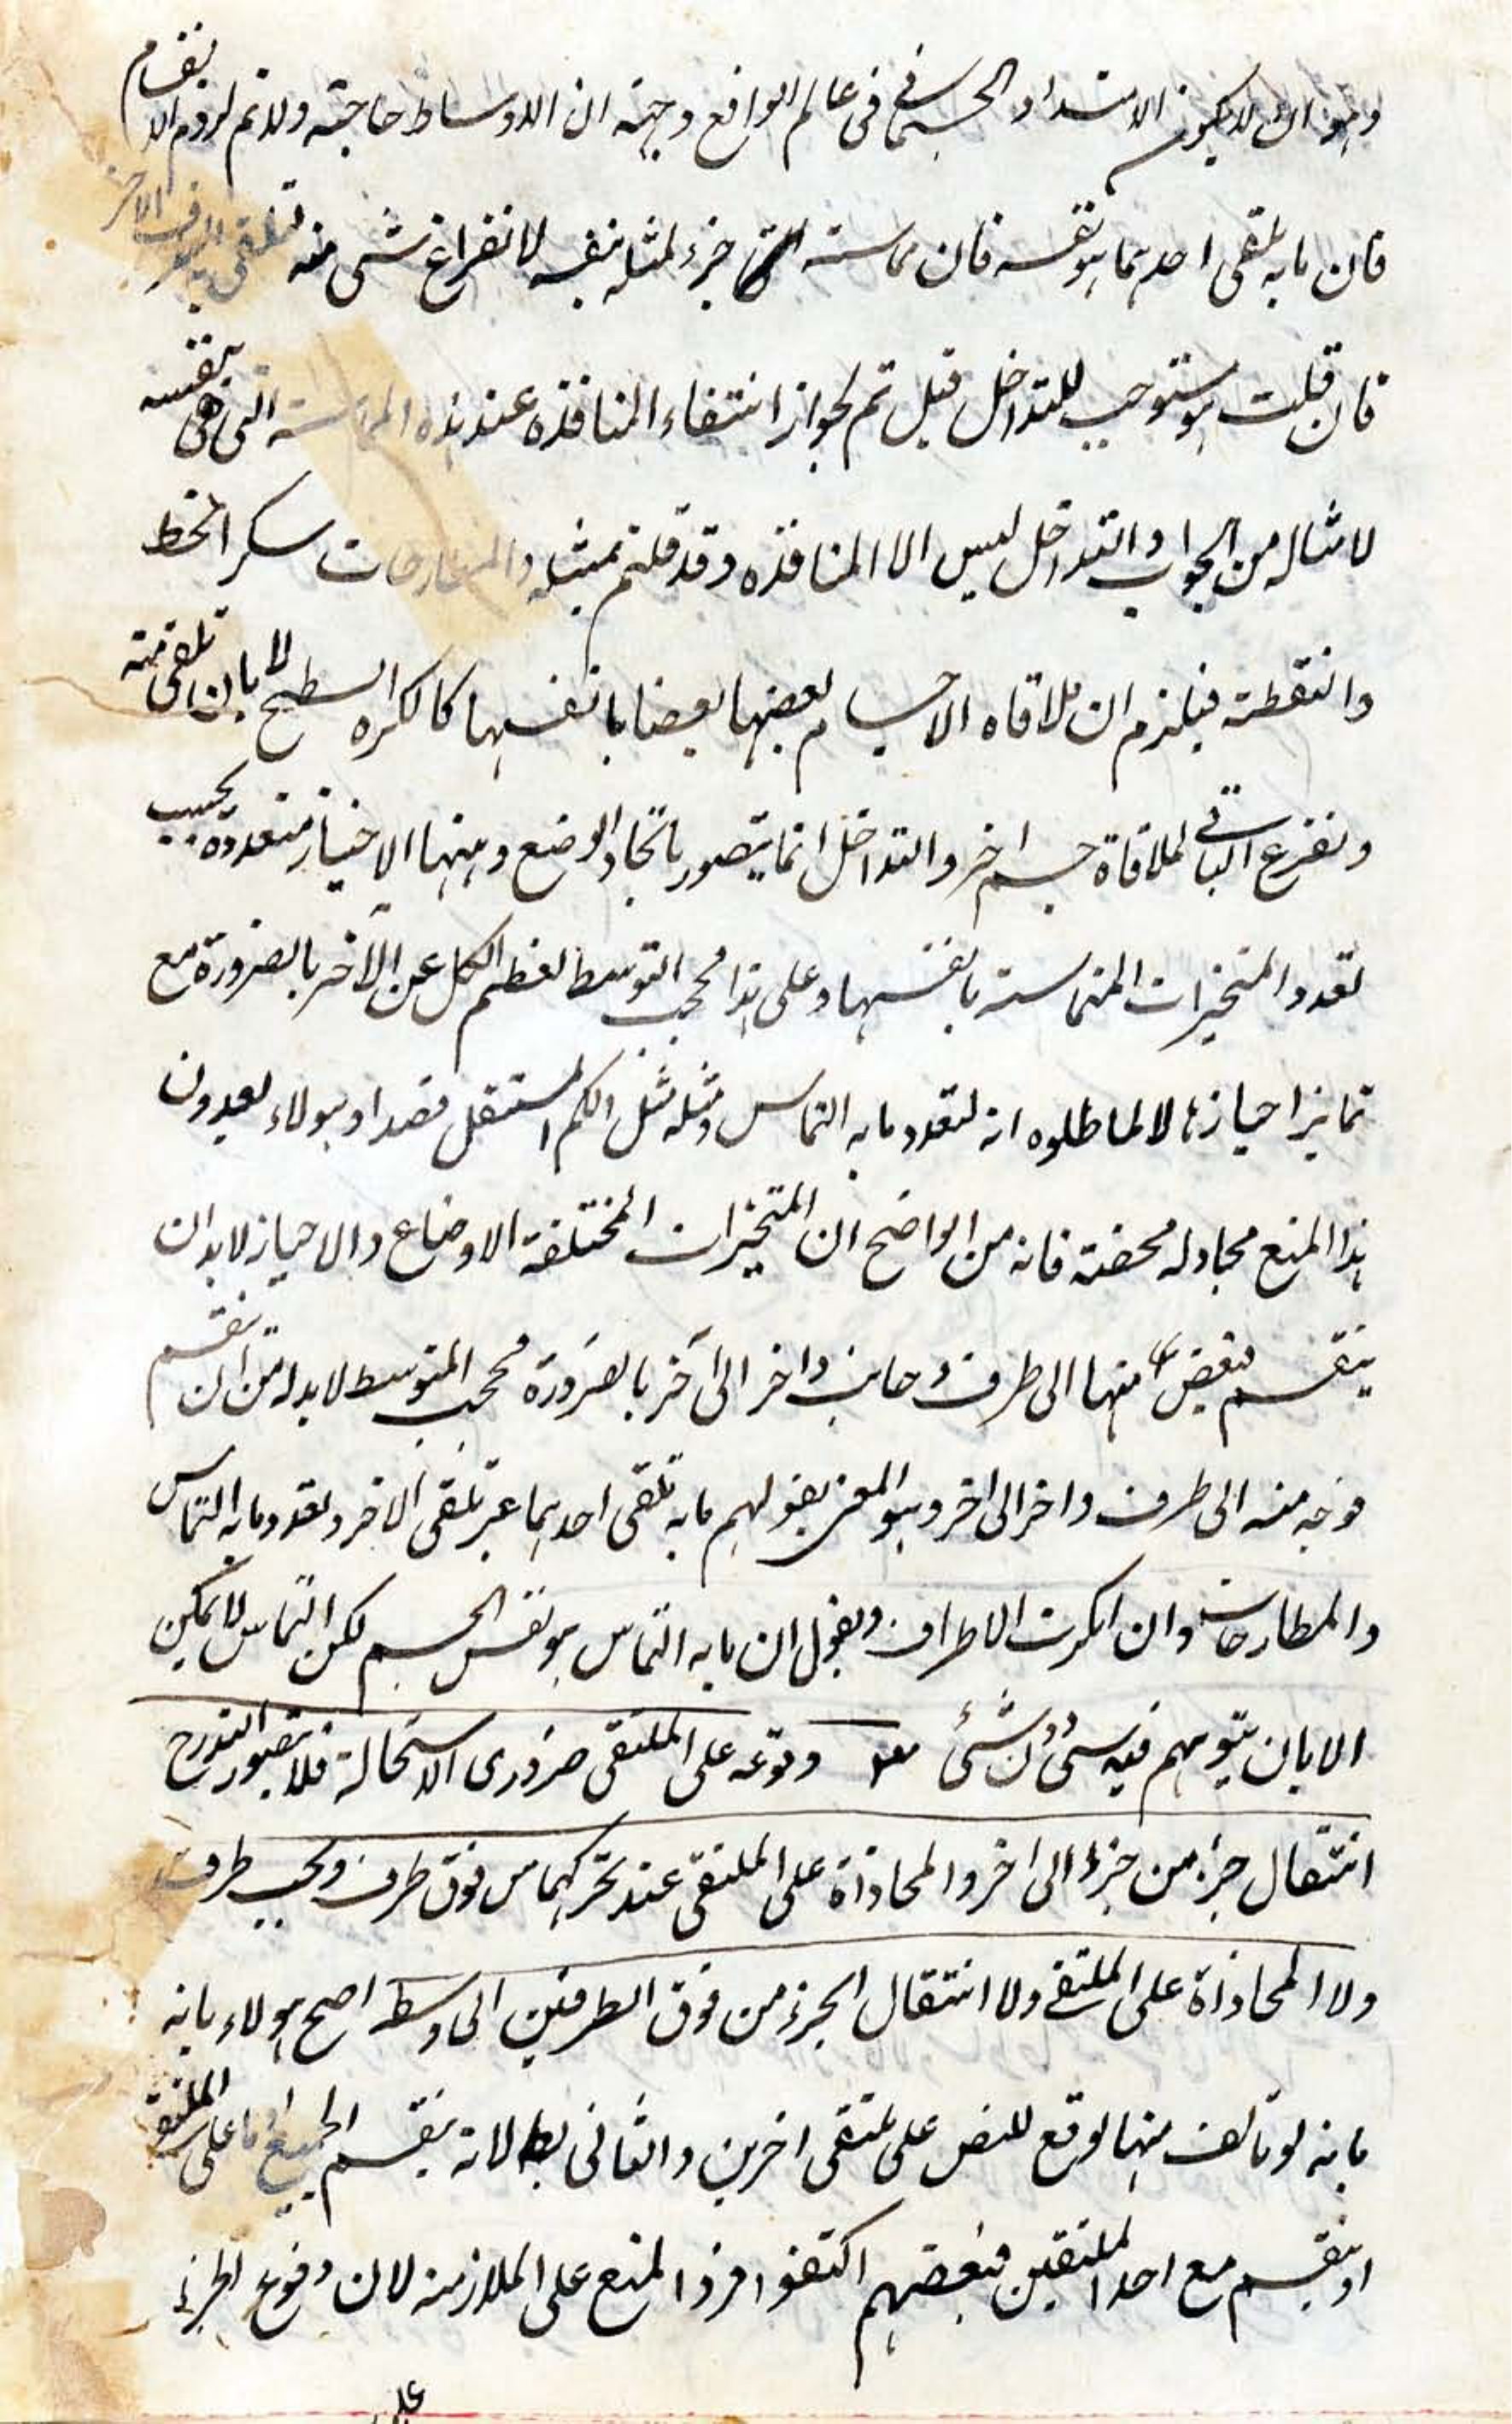 وهو ان لا يكون الامتداد الجسمانى فى عالم الواقع وجهته ان الاوساط حاجبة ولا تم لزوم الانقسام
فان ما به يلقى احدهما هو نفسه فان مماسته جزء لمثله بنفسه لا نفراغ شئ منه لتلقى به الطرف الاخر
فان قلت هو مستوجب للتداخل قيل تم لجواز انتفاء المنافذه عند هذه المماسته التى هى بنفسه
لا مثاله من الجواب والتداخل ليس الا المنافذه وقد قلتم بمثله سكر الخط
والنقطة فيلزم ان ملاقاه الاجسام بعضها بعضا بانفسها كالكره السطح لا بان تلقى منه
ونفرع الباقى لملاقاة جسم اخر والتداخل انما يتصور باتحاد الوضع وههنا الاحياز متعدده بحسب
تعدد المتحيزات المتماسته بانفسها وعلى هذا محجب التوسط لعظم الكل عن الآخر بالضرورة مع
تمايز احيازها لا لما ظلوه انه لتعدد ما به التماس ومثله مثل الكم المستقل قصدا وهولاء يعيدون
هذا المنع مجادله محضته فانه من الواضح ان المتحيزات المختلفة الاوضاع والاحياز لا بد ان
ينقسم بعض منها الى طرف وجانب واخر الى آخر بالضرورة محجب المتوسط لا بد له من ان ينقسم
فوجه منه الى طرف واخر الى اخر وهو المعنى بقولهم ما به تلقى احدهما غير تلقى الاخر وتعدد ما به التماس
والمطارحات وان انكرت الاطراف ويقول ان ما به التماس هو نفس الجسم لكن التماس لا يمكن
الا بان يتوهم فيه شئ دون شئ وقوعه على الملتقى ضرورى الاستحالة فلا يتصور التدرج
انتقال جزء من جزء الى اخر والمحاذاة على الملتقى عند تحركهما من فوق طرف وتحت طرف
ولا المحاذاة على الملتقى ولا انتقال الجزء من فوق الطرفين الى وسط اصح هولاء بانه
بانه لو تالف منها لوقع للنص على ملتقى اخرين والثانى بط لانه ينقسم الجميع اما على الملتقى
او ينقسم مع احد الملتقين فبعضهم اكتفوا المنع على الملازمة لان وقوع الجزء
على